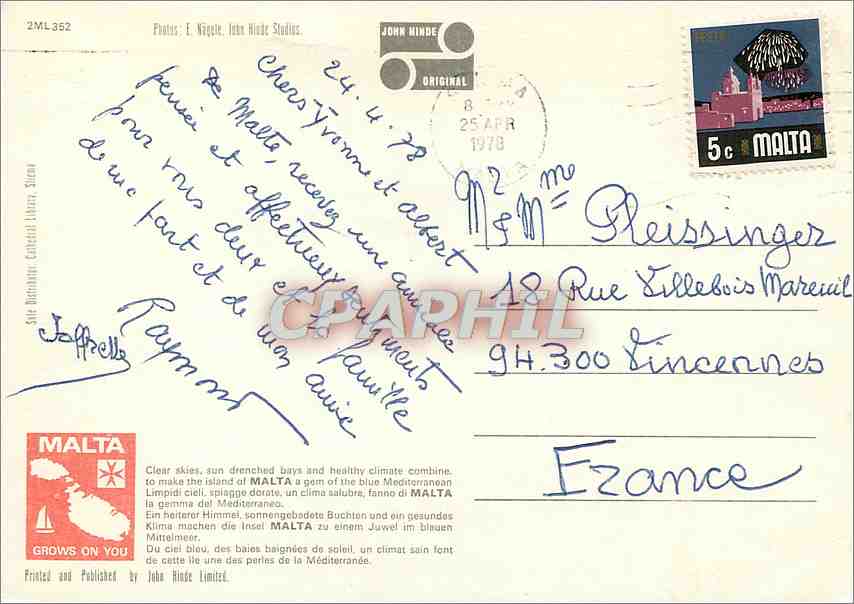 2ML352
Photos: E. Nägele, John Hinde Studios.
JOHN HINDE
ORIGINAL
8
25 APR
1978
FESTA
5c MALTA
24.4.78
Chers Yvonne et Albert
de Malte, recevez une amicale
pensée et affectueux sentiments
pour vous deux et la famille
de ma part et de mon amie
Raymond
Joffrette
Mr & Mme Pleissinger
18 Rue Villebois Mareuil
94.300 Vincennes
France
Sole Distributor: Cathedral Library, Sliema
CPAPHIL
MALTA
GROWS ON YOU
Clear skies, sun drenched bays and healthy climate combine,
to make the island of MALTA a gem of the blue Mediterranean
Limpidi cieli, spiagge dorate, un clima salubre, fanno di MALTA
la gemma del Mediterraneo.
Ein heiterer Himmel, sonnengebadete Buchten und ein gesundes
Klima machen die Insel MALTA zu einem Juwel im blauen
Mittelmeer.
Du ciel bleu, des baies baignées de soleil, un climat sain font
de cette île une des perles de la Méditerranée.
Printed and Published by John Hinde Limited.